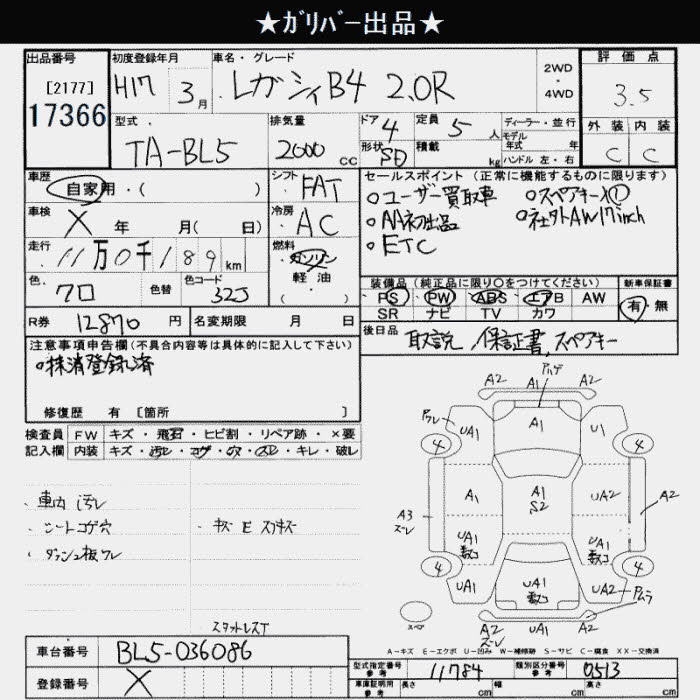 ★ガリバー出品★
出品番号
[2177]
17366
初度登録年月
H17年 3月
車名・グレード
レガシィB4 2.0R
2WD
・
4WD
評価点
3.5
外装 内装
C C
型式
TA-BL5
排気量
2000 cc
ドア 4
形状 SD
定員 5 人
積載 kg
ディーラー・並行
モデル
年式 年
ハンドル 左・右
車歴
自家用・( )
シフト
FAT
車検
X 年 月( 日)
冷房
AC
走行
11万0千189 km
燃料
ガソリン
軽油
( )
色
クロ
色替
色コード
32J
R券 12870 円
名変期限 月 日
セールスポイント (正常に機能するものに限ります)
○ユーザー買取車 ○スペアキーX①
○AA初出品 ○社外AW17inch
○ETC
装備品 (純正品に限り○をつけてください)
PS PW ABS エアB AW
SR ナビ TV カワ
新車保証書
有・無
後日品
取説 保証書 スペアキー
注意事項申告欄(不具合内容等は具体的に記入して下さい)
○抹消登録済
修復歴 有 [箇所 ]
検査員
記入欄
FW キズ・飛石・ヒビ割・リペア跡・×要
内装 キズ・汚レ・コゲ・穴・スレ・キレ・破レ
・車内 汚レ
・シートコゲ穴
・ダッシュ板ワレ
・キズ E スリキズ
スタットレスT
車台番号
BL5-036086
登録番号
X
アハゲ
A2 A1 A2
アワレ
UA1 A1 U1
4 4
A1 A1 S2 UA2
A3 スレ
A2
UA1 数コ UA1 数コ
4 4
UA1 UA1 数コ UA2
アムラ
スペア
A2 スレ A1 A2
A-キズ E-エクボ U-凹み W-補修跡 S-サビ C-腐食 XX-交換済
型式指定番号
参考
11784
類別区分番号
参考
0513
車庫証明用
参考
長さ cm 幅 cm 高さ cm